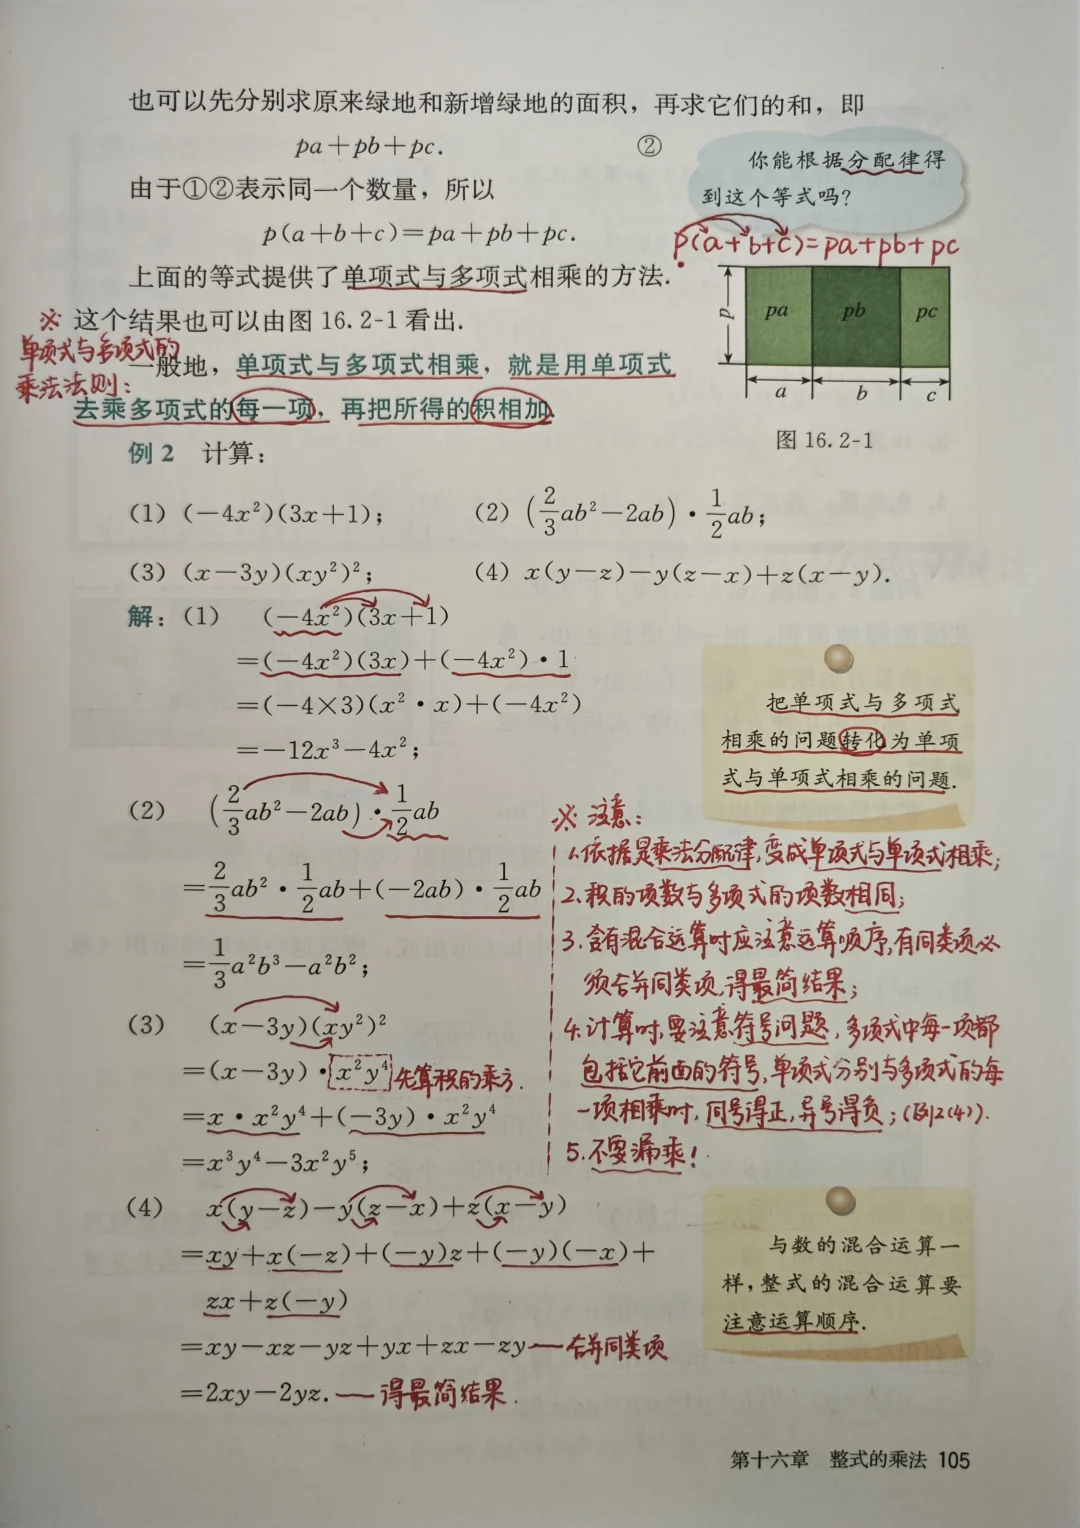 也可以先分别求原来绿地和新增绿地的面积，再求它们的和，即
pa＋pb＋pc. ②
由于①②表示同一个数量，所以
p(a＋b＋c)＝pa＋pb＋pc.
上面的等式提供了单项式与多项式相乘的方法.
你能根据分配律得
到这个等式吗？
p(a+b+c)=pa+pb+pc
※ 这个结果也可以由图 16.2-1 看出.
单项式与多项式的
乘法法则：
一般地，单项式与多项式相乘，就是用单项式
去乘多项式的每一项，再把所得的积相加.
p pa pb pc
a b c
图 16.2-1
例 2 计算：
(1) (－4x²)(3x＋1)； (2) (2/3ab²－2ab)·1/2ab；
(3) (x－3y)(xy²)²； (4) x(y－z)－y(z－x)＋z(x－y).
解：(1) (－4x²)(3x＋1)
＝(－4x²)(3x)＋(－4x²)·1
＝(－4×3)(x²·x)＋(－4x²)
＝－12x³－4x²；
把单项式与多项式
相乘的问题转化为单项
式与单项式相乘的问题.
(2) (2/3ab²－2ab)·1/2ab
＝2/3ab²·1/2ab＋(－2ab)·1/2ab
＝1/3a²b³－a²b²；
(3) (x－3y)(xy²)²
＝(x－3y)·x²y⁴ 先算积的乘方.
＝x·x²y⁴＋(－3y)·x²y⁴
＝x³y⁴－3x²y⁵；
※ 注意：
1.依据是乘法分配律,变成单项式与单项式相乘;
2.积的项数与多项式的项数相同;
3.含有混合运算时应注意运算顺序,有同类项必
须合并同类项,得最简结果;
4.计算时,要注意符号问题,多项式中每一项都
包括它前面的符号,单项式分别与多项式的每
一项相乘时,同号得正,异号得负;(例2(4)).
5.不要漏乘!
(4) x(y－z)－y(z－x)＋z(x－y)
＝xy＋x(－z)＋(－y)z＋(－y)(－x)＋
zx＋z(－y)
＝xy－xz－yz＋yx＋zx－zy — 合并同类项
＝2xy－2yz. — 得最简结果.
与数的混合运算一
样，整式的混合运算要
注意运算顺序.
第十六章 整式的乘法 105